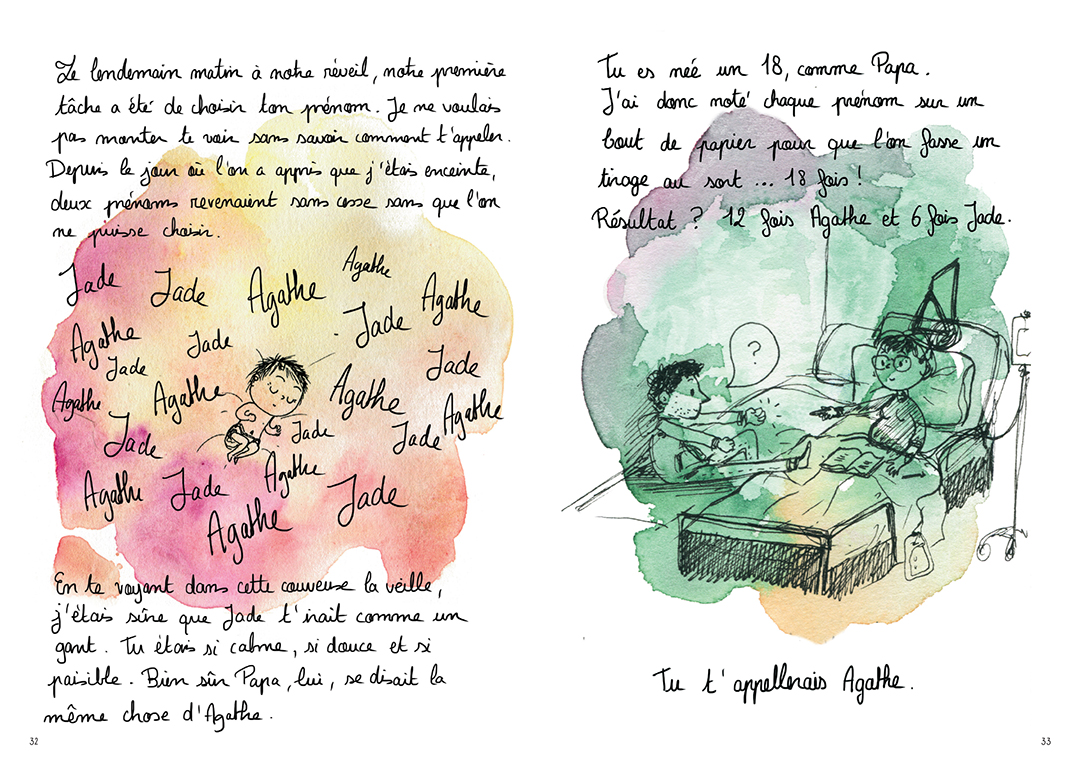 Le lendemain matin à notre réveil, notre première
tâche a été de choisir ton prénom. Je ne voulais
pas monter te voir sans savoir comment t'appeler.
Depuis le jour où l'on a appris que j'étais enceinte,
deux prénoms revenaient sans cesse sans que l'on
ne puisse choisir.
Jade
Jade
Agathe
Agathe
Agathe
Agathe
Jade
Jade
Jade
Jade
Agathe
Agathe
Agathe
Agathe
Jade
Jade
Jade
Agathe
Jade
Agathe
Jade
Agathe
En te voyant dans cette couveuse la veille,
j'étais sûre que Jade t'irait comme un
gant. Tu étais si calme, si douce et si
paisible. Bien sûr Papa, lui, se disait la
même chose d'Agathe.
32
Tu es née un 18, comme Papa.
J'ai donc noté chaque prénom sur un
bout de papier pour que l'on fasse un
tirage au sort ... 18 fois !
Résultat ? 12 fois Agathe et 6 fois Jade.
?
Tu t'appellerais Agathe.
33